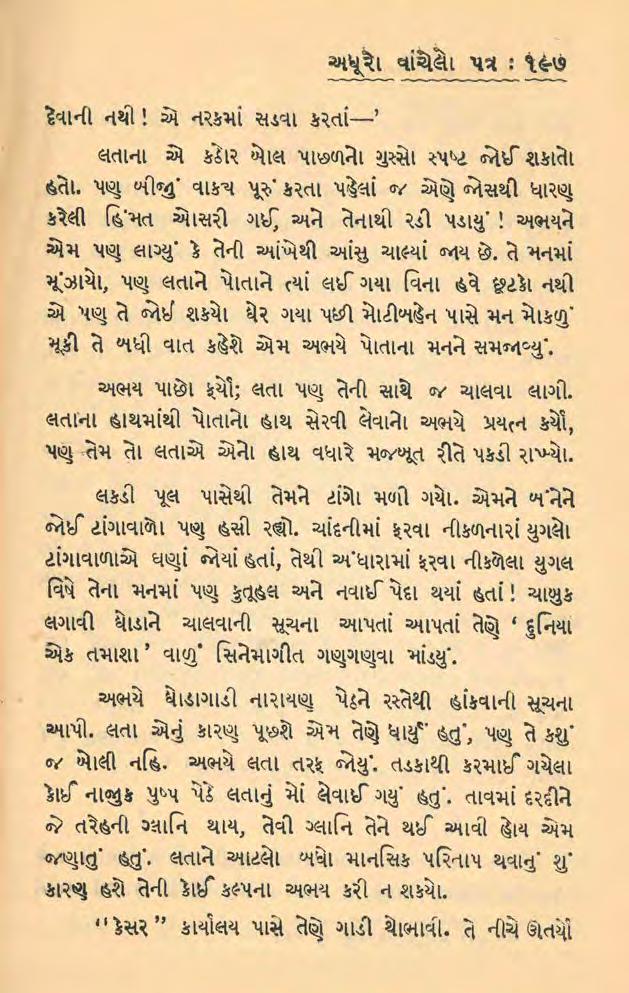 અધૂરો વાંચેલો પત્ર : ૧૯૭
દેવાની નથી ! એ નરકમાં સડવા કરતાં—’
લતાના એ કઠોર બોલ પાછળનો ગુસ્સો સ્પષ્ટ જોઈ શકાતો
હતો. પણ બીજું વાક્ય પૂરું કરતા પહેલાં જ એણે જોસથી ધારણ
કરેલી હિંમત ઓસરી ગઈ, અને તેનાથી રડી પડાયું ! અભયને
એમ પણ લાગ્યું કે તેની આંખેથી આંસુ ચાલ્યાં જાય છે. તે મનમાં
મૂંઝાયો, પણ લતાને પોતાને ત્યાં લઈ ગયા વિના હવે છૂટકો નથી
એ પણ તે જોઈ શકયો ઘેર ગયા પછી મોટીબહેન પાસે મન મોકળું
મૂકી તે બધી વાત કહેશે એમ અભયે પોતાના મનને સમજાવ્યું.
અભય પાછો ફર્યો; લતા પણ તેની સાથે જ ચાલવા લાગી.
લતાના હાથમાંથી પોતાનો હાથ સેરવી લેવાનો અભયે પ્રયત્ન કર્યો,
પણ તેમ તો લતાએ એનો હાથ વધારે મજબૂત રીતે પકડી રાખ્યો.
લકડી પૂલ પાસેથી તેમને ટાંગો મળી ગયો. એમને બંનેને
જોઈ ટાંગાવાળો પણ હસી રહ્યો. ચાંદનીમાં ફરવા નીકળનારાં યુગલો
ટાંગાવાળાએ ઘણાં જોયાં હતાં, તેથી અંધારામાં ફરવા નીકળેલા યુગલ
વિષે તેના મનમાં પણ કુતૂહલ અને નવાઈ પેદા થયાં હતાં ! ચાબુક
લગાવી ઘોડાને ચાલવાની સૂચના આપતાં આપતાં તેણે ‘ દુનિયા
એક તમાશા ’ વાળું સિનેમાગીત ગણગણવા માંડયું.
અભયે ઘોડાગાડી નારાયણ પેઠને રસ્તેથી હાંકવાની સૂચના
આપી. લતા એનું કારણ પૂછશે એમ તેણે ધાર્યું હતું, પણ તે કશું
જ બોલી નહિ. અભયે લતા તરફ જોયું. તડકાથી કરમાઈ ગયેલા
કોઈ નાજુક પુષ્પ પેઠે લતાનું મોં લેવાઈ ગયું હતું. તાવમાં દરદીને
જે તરેહની ગ્લાનિ થાય, તેવી ગ્લાનિ તેને થઈ આવી હોય એમ
જણાતું હતું. લતાને આટલો બધો માનસિક પરિતાપ થવાનું શું
કારણ હશે તેની કોઈ કલ્પના અભય કરી ન શકયો.
“ કેસર ” કાર્યાલય પાસે તેણે ગાડી થોભાવી. તે નીચે ઊતર્યો